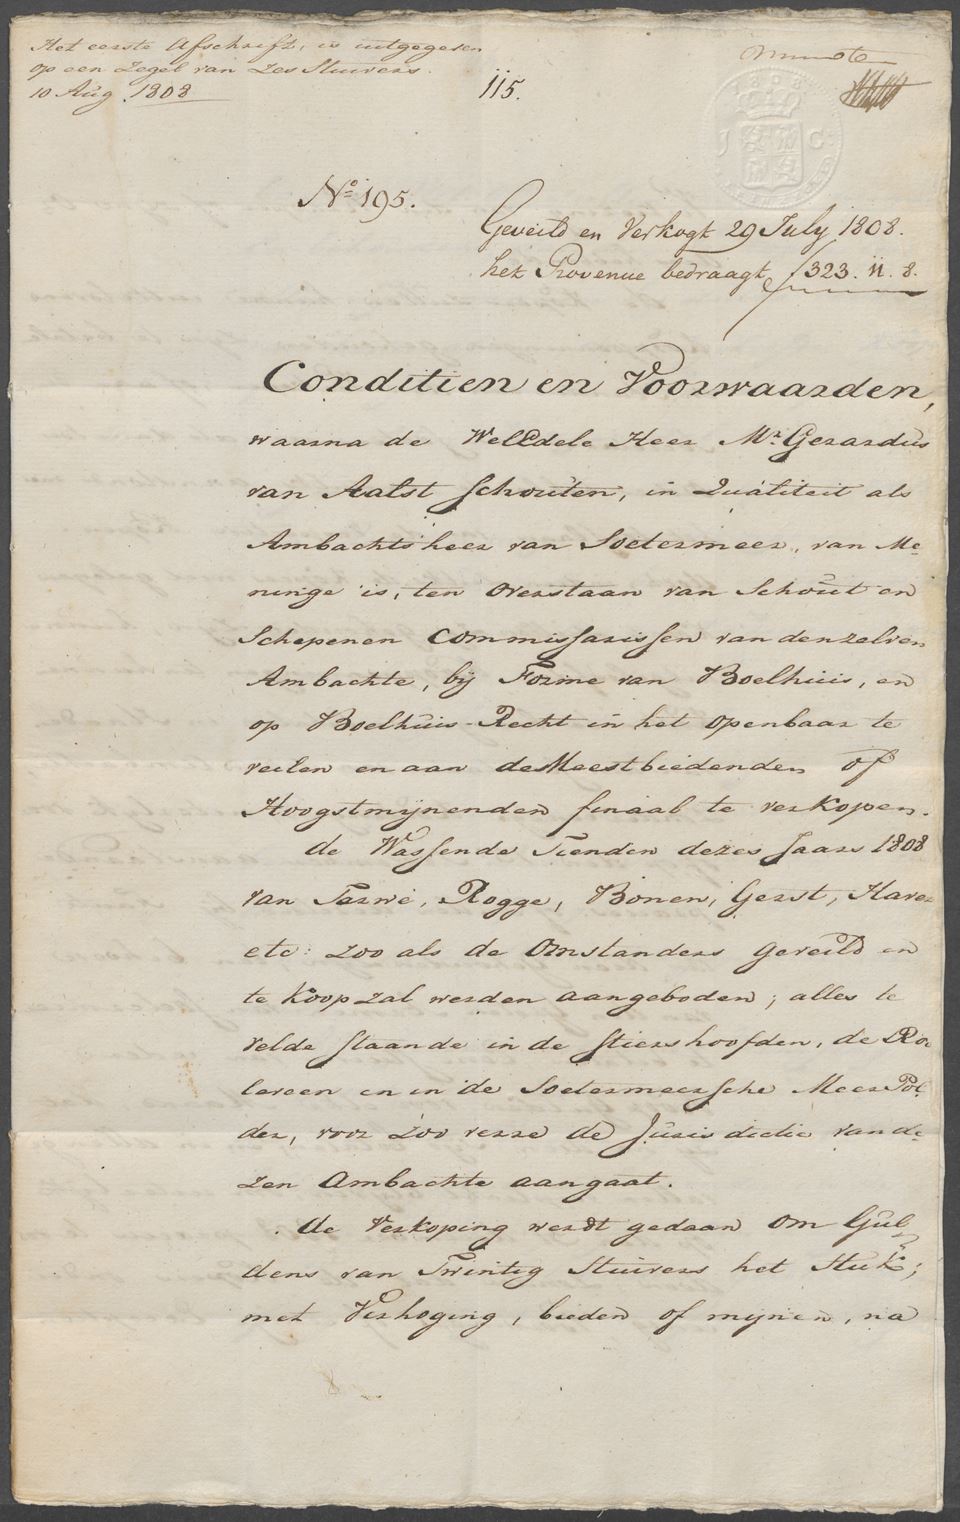 Het eerste Afschrift, is uitgegeven
op een Zegel van Zes Stuivers.
10 Aug. 1808
115.
Minute
1808
J C
No 195.
Geveild en Verkogt 29 July 1808.
het Provenue bedraagt ƒ323.11.8.
Conditien en Voorwaarden,
waarna de WelEdele Heer Mr. Gerardus
van Aalst Schouten, in Qualiteit als
Ambachtsheer van Soetermeer, van Me-
ninge is, ten Overstaan van Schout en
Schepenen Commissarissen van denzelven
Ambachte, bij Forme van Boelhuis, en
op Boelhuis-Recht in het openbaar te
veilen en aan de Meestbiedenden of
Hoogstmijnenden finaal te verkopen.
de Wassende Tienden dezes Jaars 1808
van Tarwe, Rogge, Bonen, Gerst, Haver
etc: zoo als de Omstanders geveild en
te Koop zal werden aangeboden; alles te
velde staande in de Stiershoofden, de Roe
leveen en in de Soetermeersche Meer Pol-
der, voor zoo verre de Jurisdictie van de-
zen Ambachte aangaat.
de Verkoping werdt gedaan om Gul-
dens van Twintig Stuivers het Stuk;
met Verhoging, bieden of mijnen, na